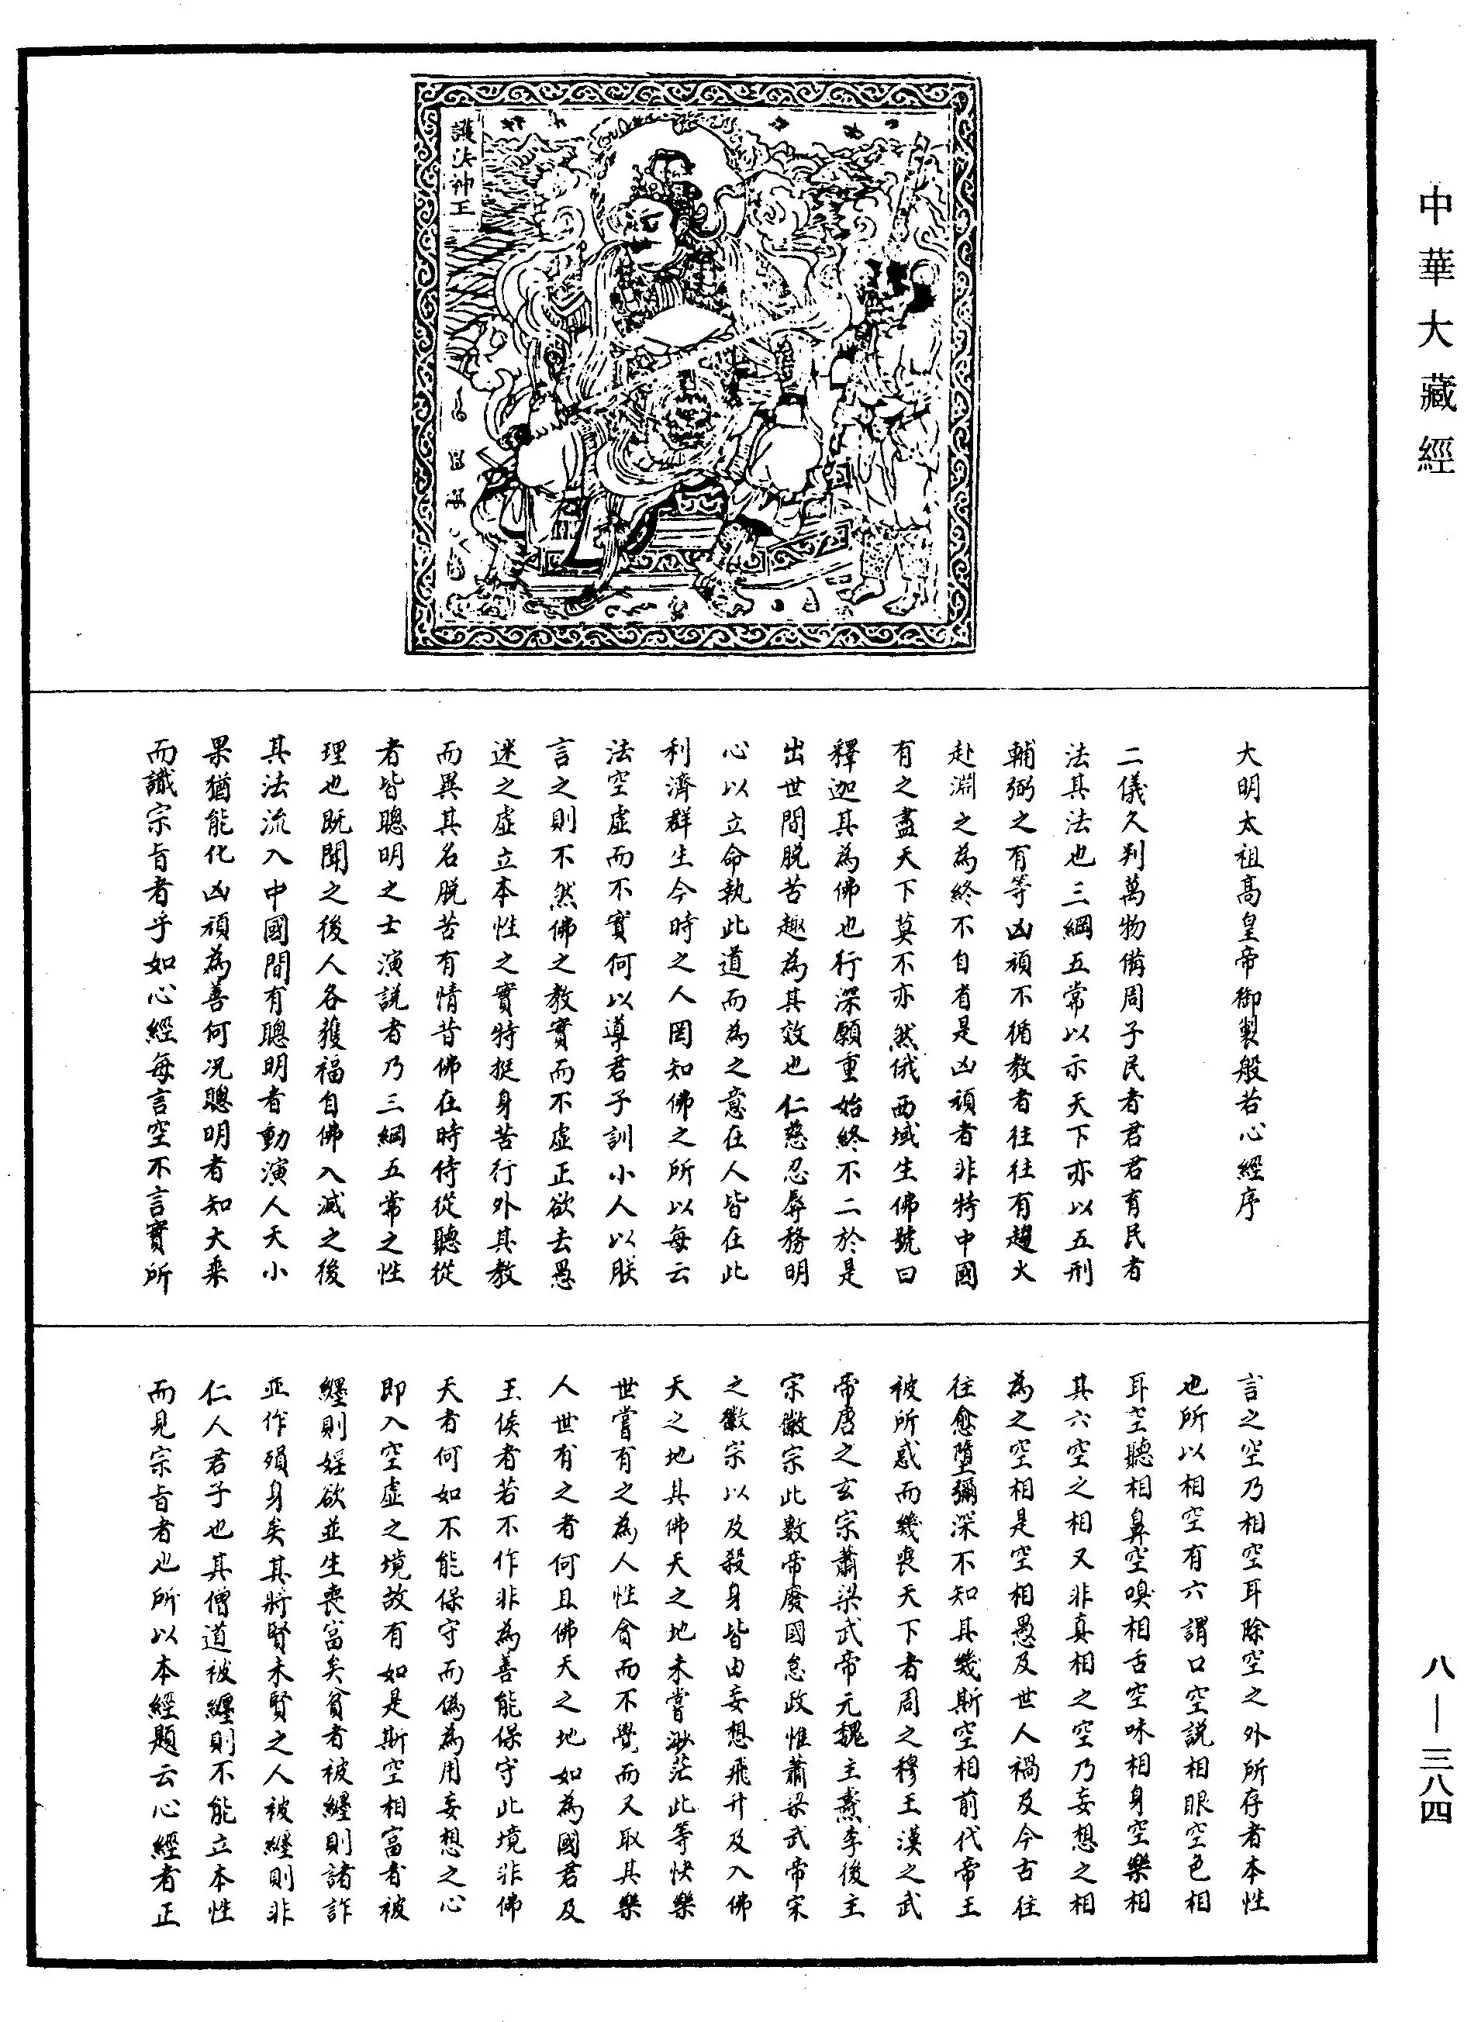 中華大藏經
護法神王
大明太祖高皇帝御製般若心經序
二儀久判萬物備周子民者君君育民者
法其法也三綱五常以示天下亦以五刑
輔弼之有等凶頑不循教者往往有趨火
赴淵之為終不自省是凶頑者非特中國
有之盡天下莫不亦然俄西域生佛號曰
釋迦其為佛也行深願重始終不二於是
出世間脱苦趣為其效也仁慈忍辱務明
心以立命執此道而為之意在人皆在此
利濟群生今時之人罔知佛之所以每云
法空虛而不實何以導君子訓小人以朕
言之則不然佛之教實而不虛正欲去愚
迷之虛立本性之實特挺身苦行外其教
而異其名脱苦有情昔佛在時侍從聽從
者皆聰明之士演説者乃三綱五常之性
理也既聞之後人各獲福自佛入滅之後
其法流入中國間有聰明者動演人天小
果猶能化凶頑為善何況聰明者知大乘
而識宗旨者乎如心經每言空不言實所
言之空乃相空耳除空之外所存者本性
也所以相空有六謂口空説相眼空色相
耳空聽相鼻空嗅相舌空味相身空樂相
其六空之相又非真相之空乃妄想之相
為之空相是空相愚及世人禍及今古往
往愈墮彌深不知其幾斯空相前代帝王
被所惑而幾喪天下者周之穆王漢之武
帝唐之玄宗蕭梁武帝元魏主燾李後主
宋徽宗此數帝廢國怠政惟蕭梁武帝宋
之徽宗以及殺身皆由妄想飛升及入佛
天之地其佛天之地未嘗渺茫此等快樂
世嘗有之為人性貪而不覺而又取其樂
人世有之者何且佛天之地如為國君及
王侯者若不作非為善能保守此境非佛
天者何如不能保守而偽為用妄想之心
即入空虛之境故有如是斯空相富者被
纏則婬欲並生喪富矣貧者被纏則諸詐
並作殞身矣其將賢未賢之人被纏則非
仁人君子也其僧道被纏則不能立本性
而見宗旨者也所以本經題云心經者正
八—三八四